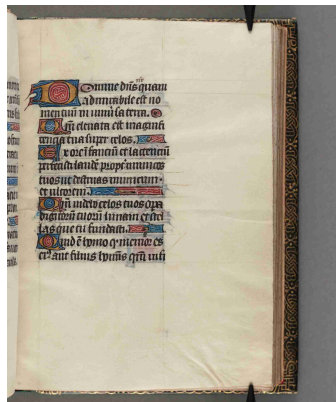 Domine dn̄s quam
admirabile est no
men tuū in uniū̄sa terra.
Qm̄ eleuata est magnifi
centia tua super celos.
Ex ore īfanciū et lactenciū
perfecisti laudē propt̄ inimicos
tuos ut destruas inimicum
et ultorem.
Qm̄ uidebo celos tuos opa
digitorū tuorū lunam et stel
las que tu fundasti.
Quid ē homo q̄ memor es
eius aut filius homīs qm̄ uisi